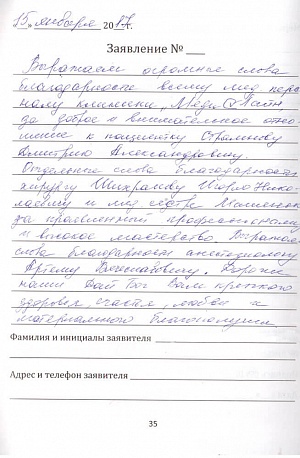 15 января 2017г.
Заявление № ___
Выражаем огромные слова
благодарности всему мед. перс
налу клиники "Меди Лайн"
за доброе и внимательное отно
шение к пациенту
Дмитрию Александровичу.
Отдельные слова благодарности
хирургу Нико
лаевичу и мед. сестре
за проявленный профессионализм
и высокое мастерство. Выражаем
слова благодарности анестезиологу
Артему Вячеславовичу. Дорогие
наши дай Бог Вам крепкого
здоровья, счастья, любви и
материального благополучия
Фамилия и инициалы заявителя
Адрес и телефон заявителя
35